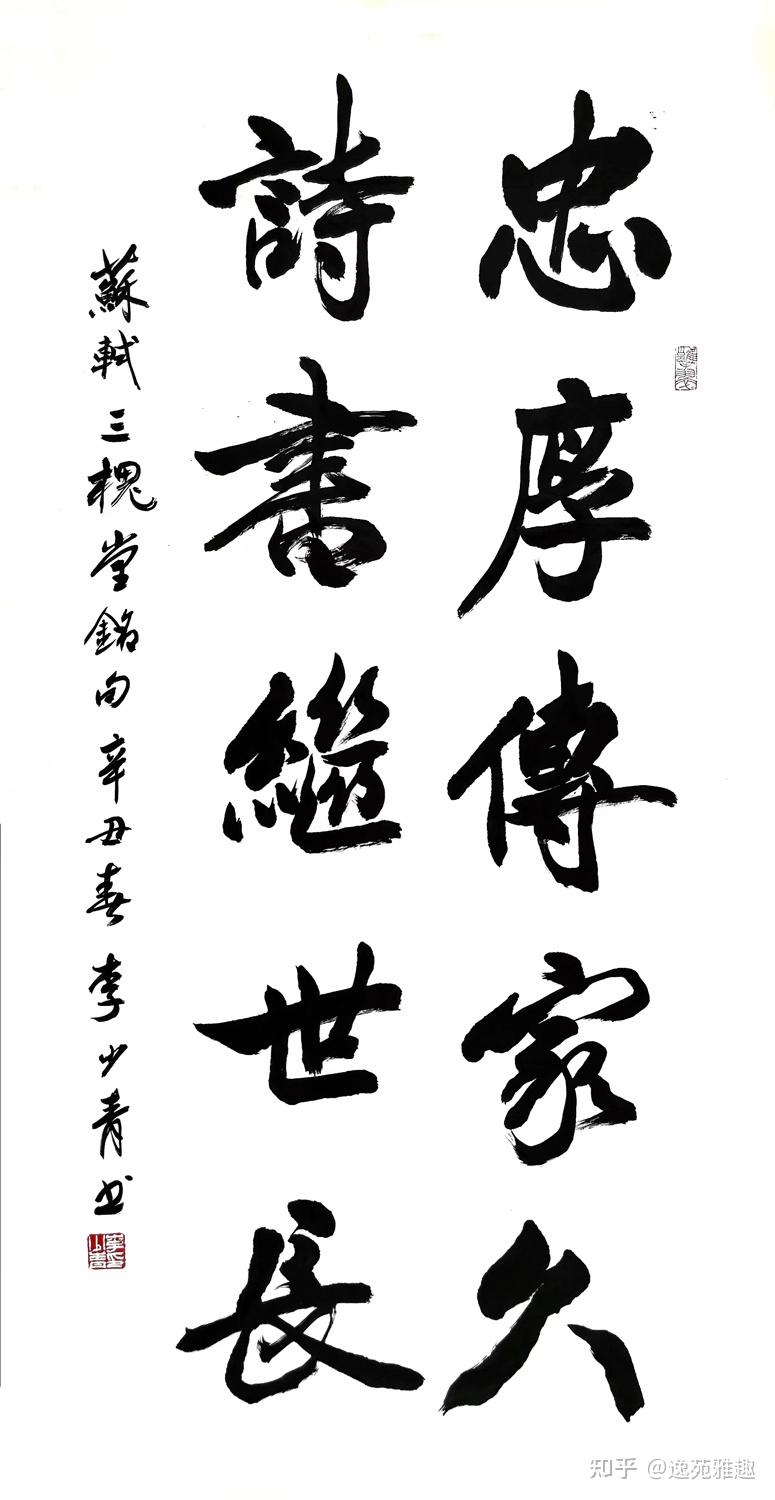 忠厚傳家久
詩書繼世長
蘇軾三槐堂銘句辛丑春李少青书
知乎 @逸苑雅趣